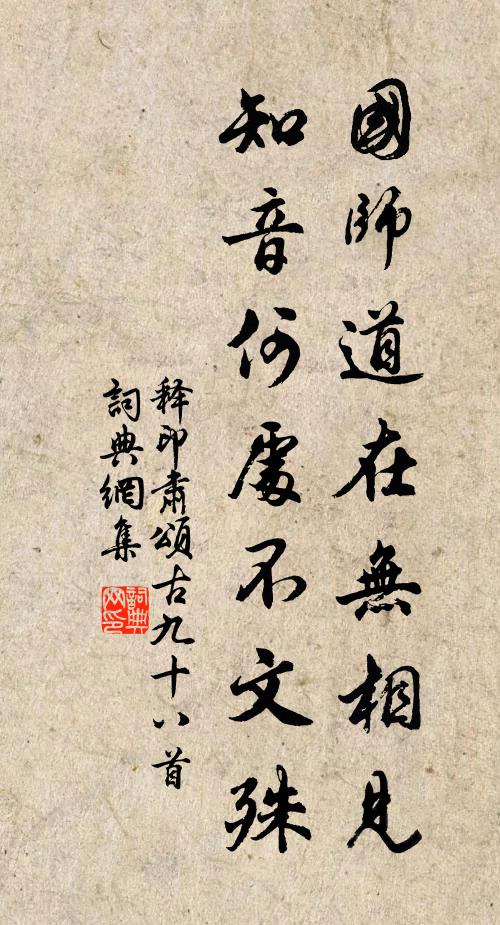 國師道在無相見
知音何處不文殊
释印肃頌古九十八首
詞典網集
詞典网印